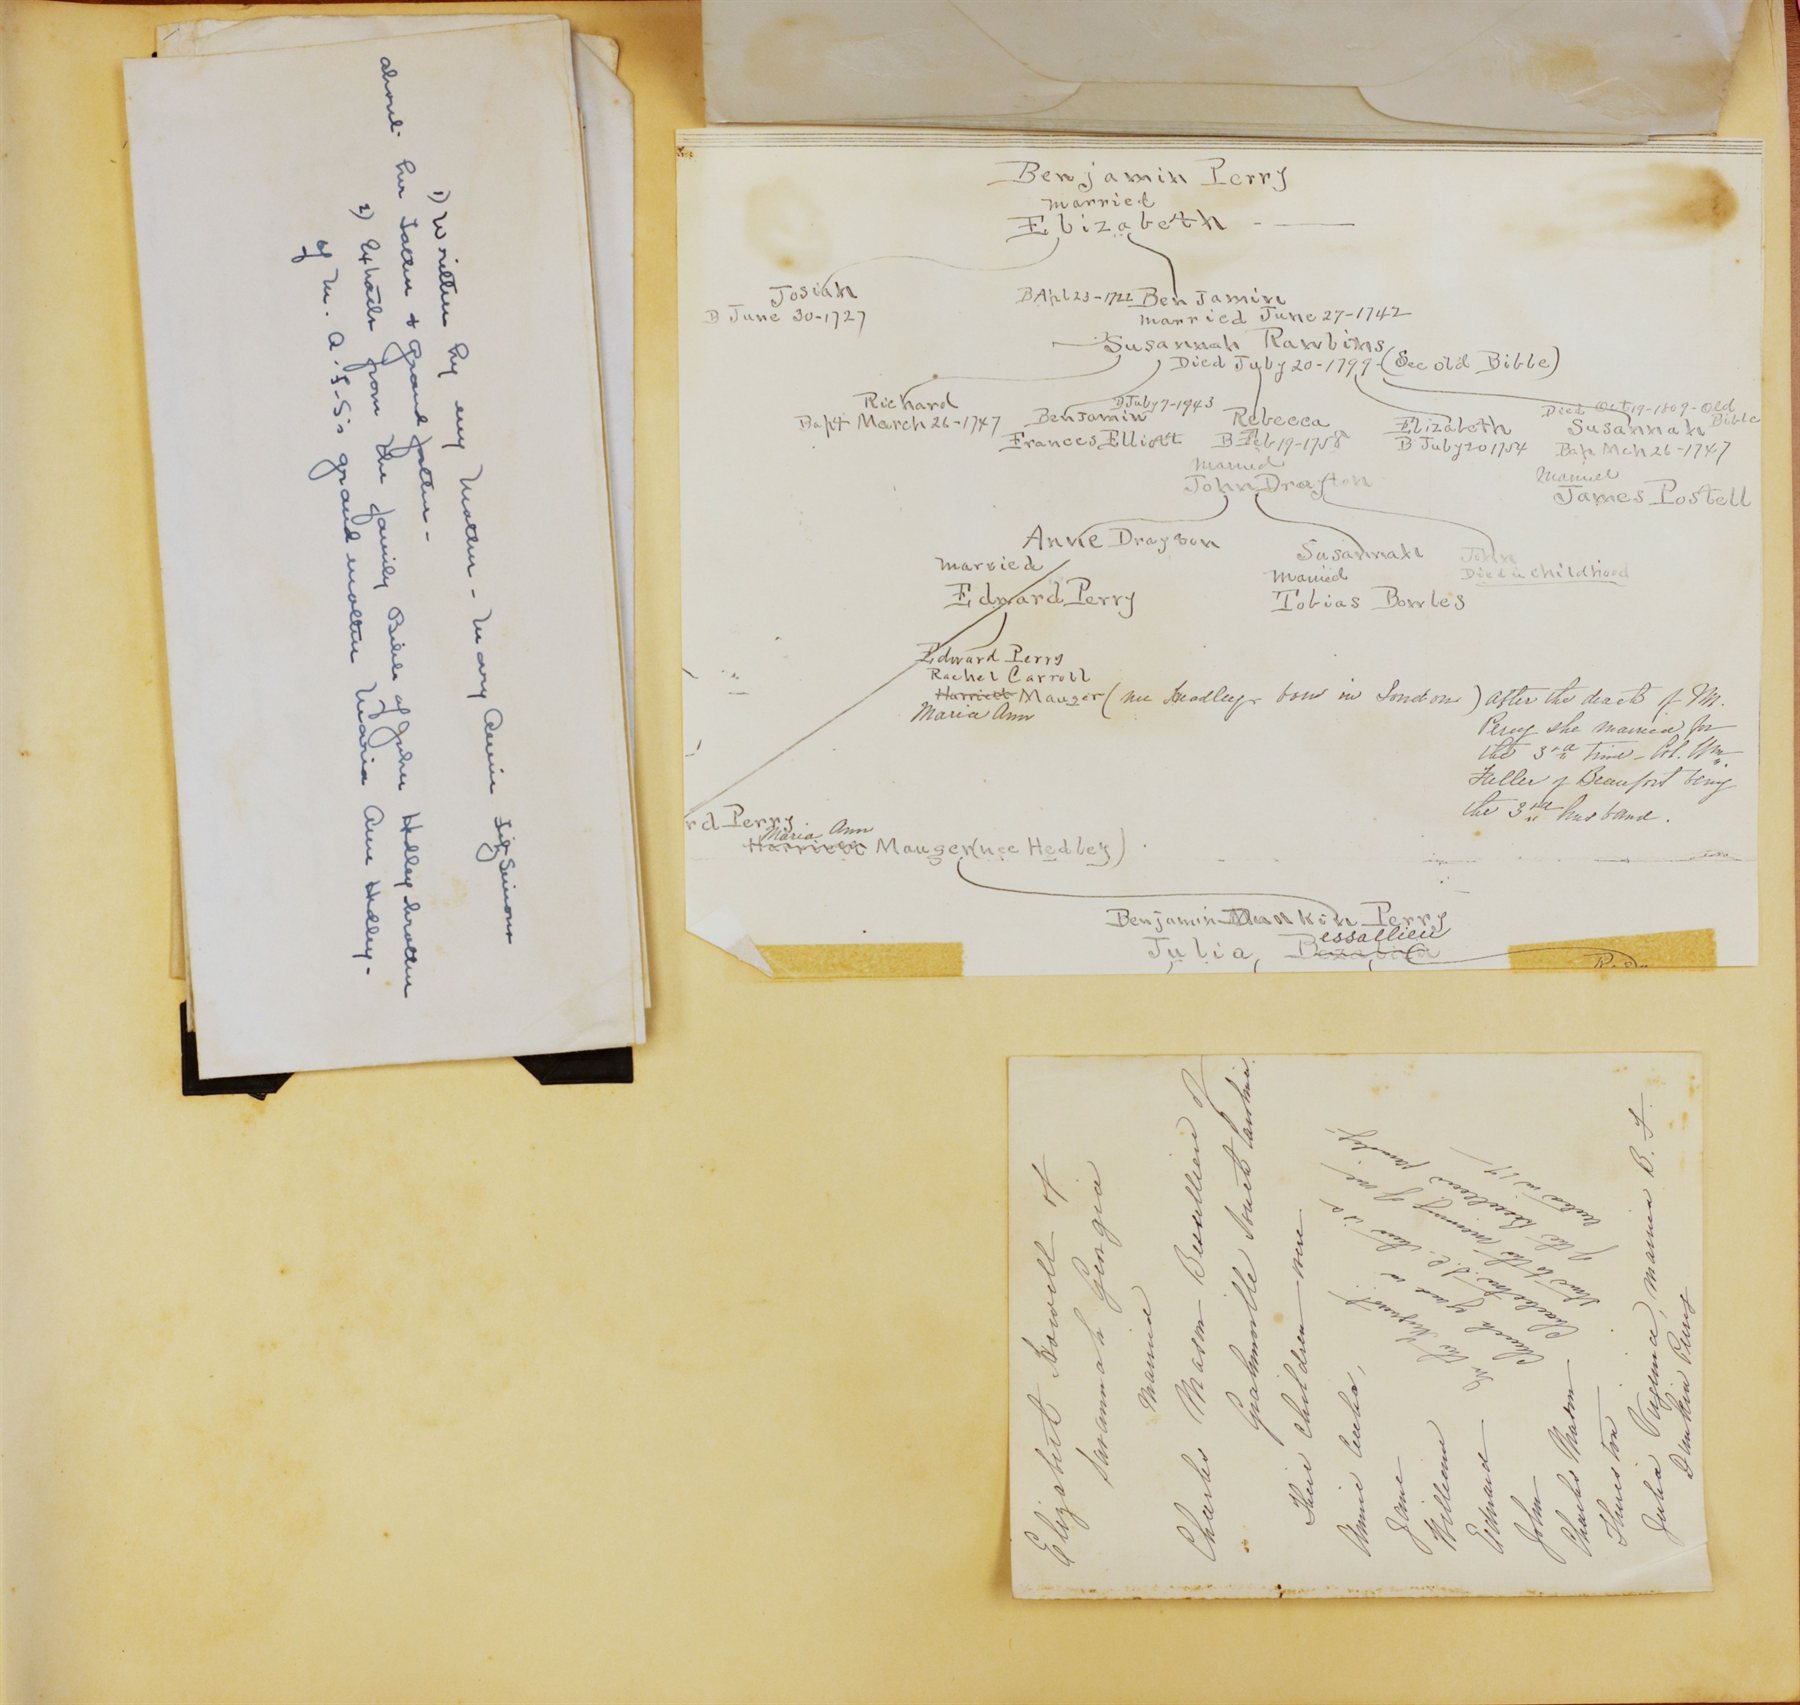 1) Written by my mother - Mary Annie
about her father & grandfather -
2) Extracts from the family Bible of John Hedley brother
of M. A. S-S's grand mother Maria Ann Hedley -
Benjamin Perry
married
Elizabeth - —
Josiah
B June 30-1727
B Apl 23-1722 Benjamin
married June 27-1742
Susannah Rawlins
Died July 20-1799 - (See old Bible)
Richard
Bapt March 26-1747
Benjamin
Frances Elliott
Rebecca
B Feb 19-1758
married
John Drayton
Elizabeth
B July 20 1754
Died Oct 19-1809 - Old Bible
Susannah
Bap Mch 26-1747
Married
James Postell
Anne Drayton
married
Edward Perry
Susannah
Married
Tobias Bowles
John
Died in childhood
Edward Perry
Rachel Carroll
Harriett Mauger (nee Headley born in London) After the death of Mr.
Maria Ann
Perry she married for
the 3rd time - Col. Wm.
Fuller of Beaufort being
the 3rd husband.
rd Perry
Maria Ann
Harriett Mauger (nee Hedley)
Benjamin Dunkin Perry
essallieu
Julia,
Elizabeth Bowell of
Savannah Georgia
married
Charles Mason Bessellieu of
Grahamville South Carolina
Their children were
Annie Lucha,
Jane
William
Edward
John
Charles Mason
Thurston
Julia Virginia, married B. F.
Dunkin Perry
Church yard in
Charleston S.C. this is a
of the